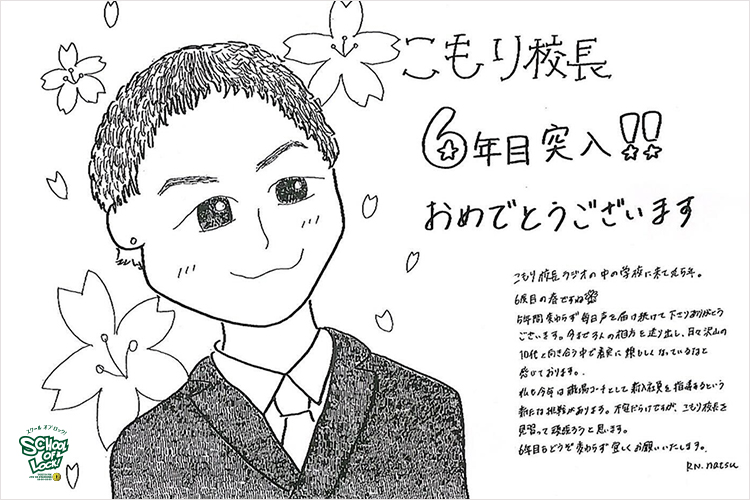 こもり校長
6年目突入!!
おめでとうございます
こもり校長ラジオの中の学校に来て丸5年。
6度目の春ですね
5年間変わらず毎日声を届け続けて下さりありがとう
ございます。今まで3人の相方を送り出し、日々沢山の
10代と向き合う中で着実に頼もしくなっているなと
感じております。
私も今年は職場コーチとして新入社員を指導するという
新たな挑戦があります。不安だらけですが、こもり校長を
見習って頑張ろうと思います。
6年目もどうぞ変わらず宜しくお願いいたします。
R.N. natsu
スクール オブ ロック!
SCHOOL OF LOCK!